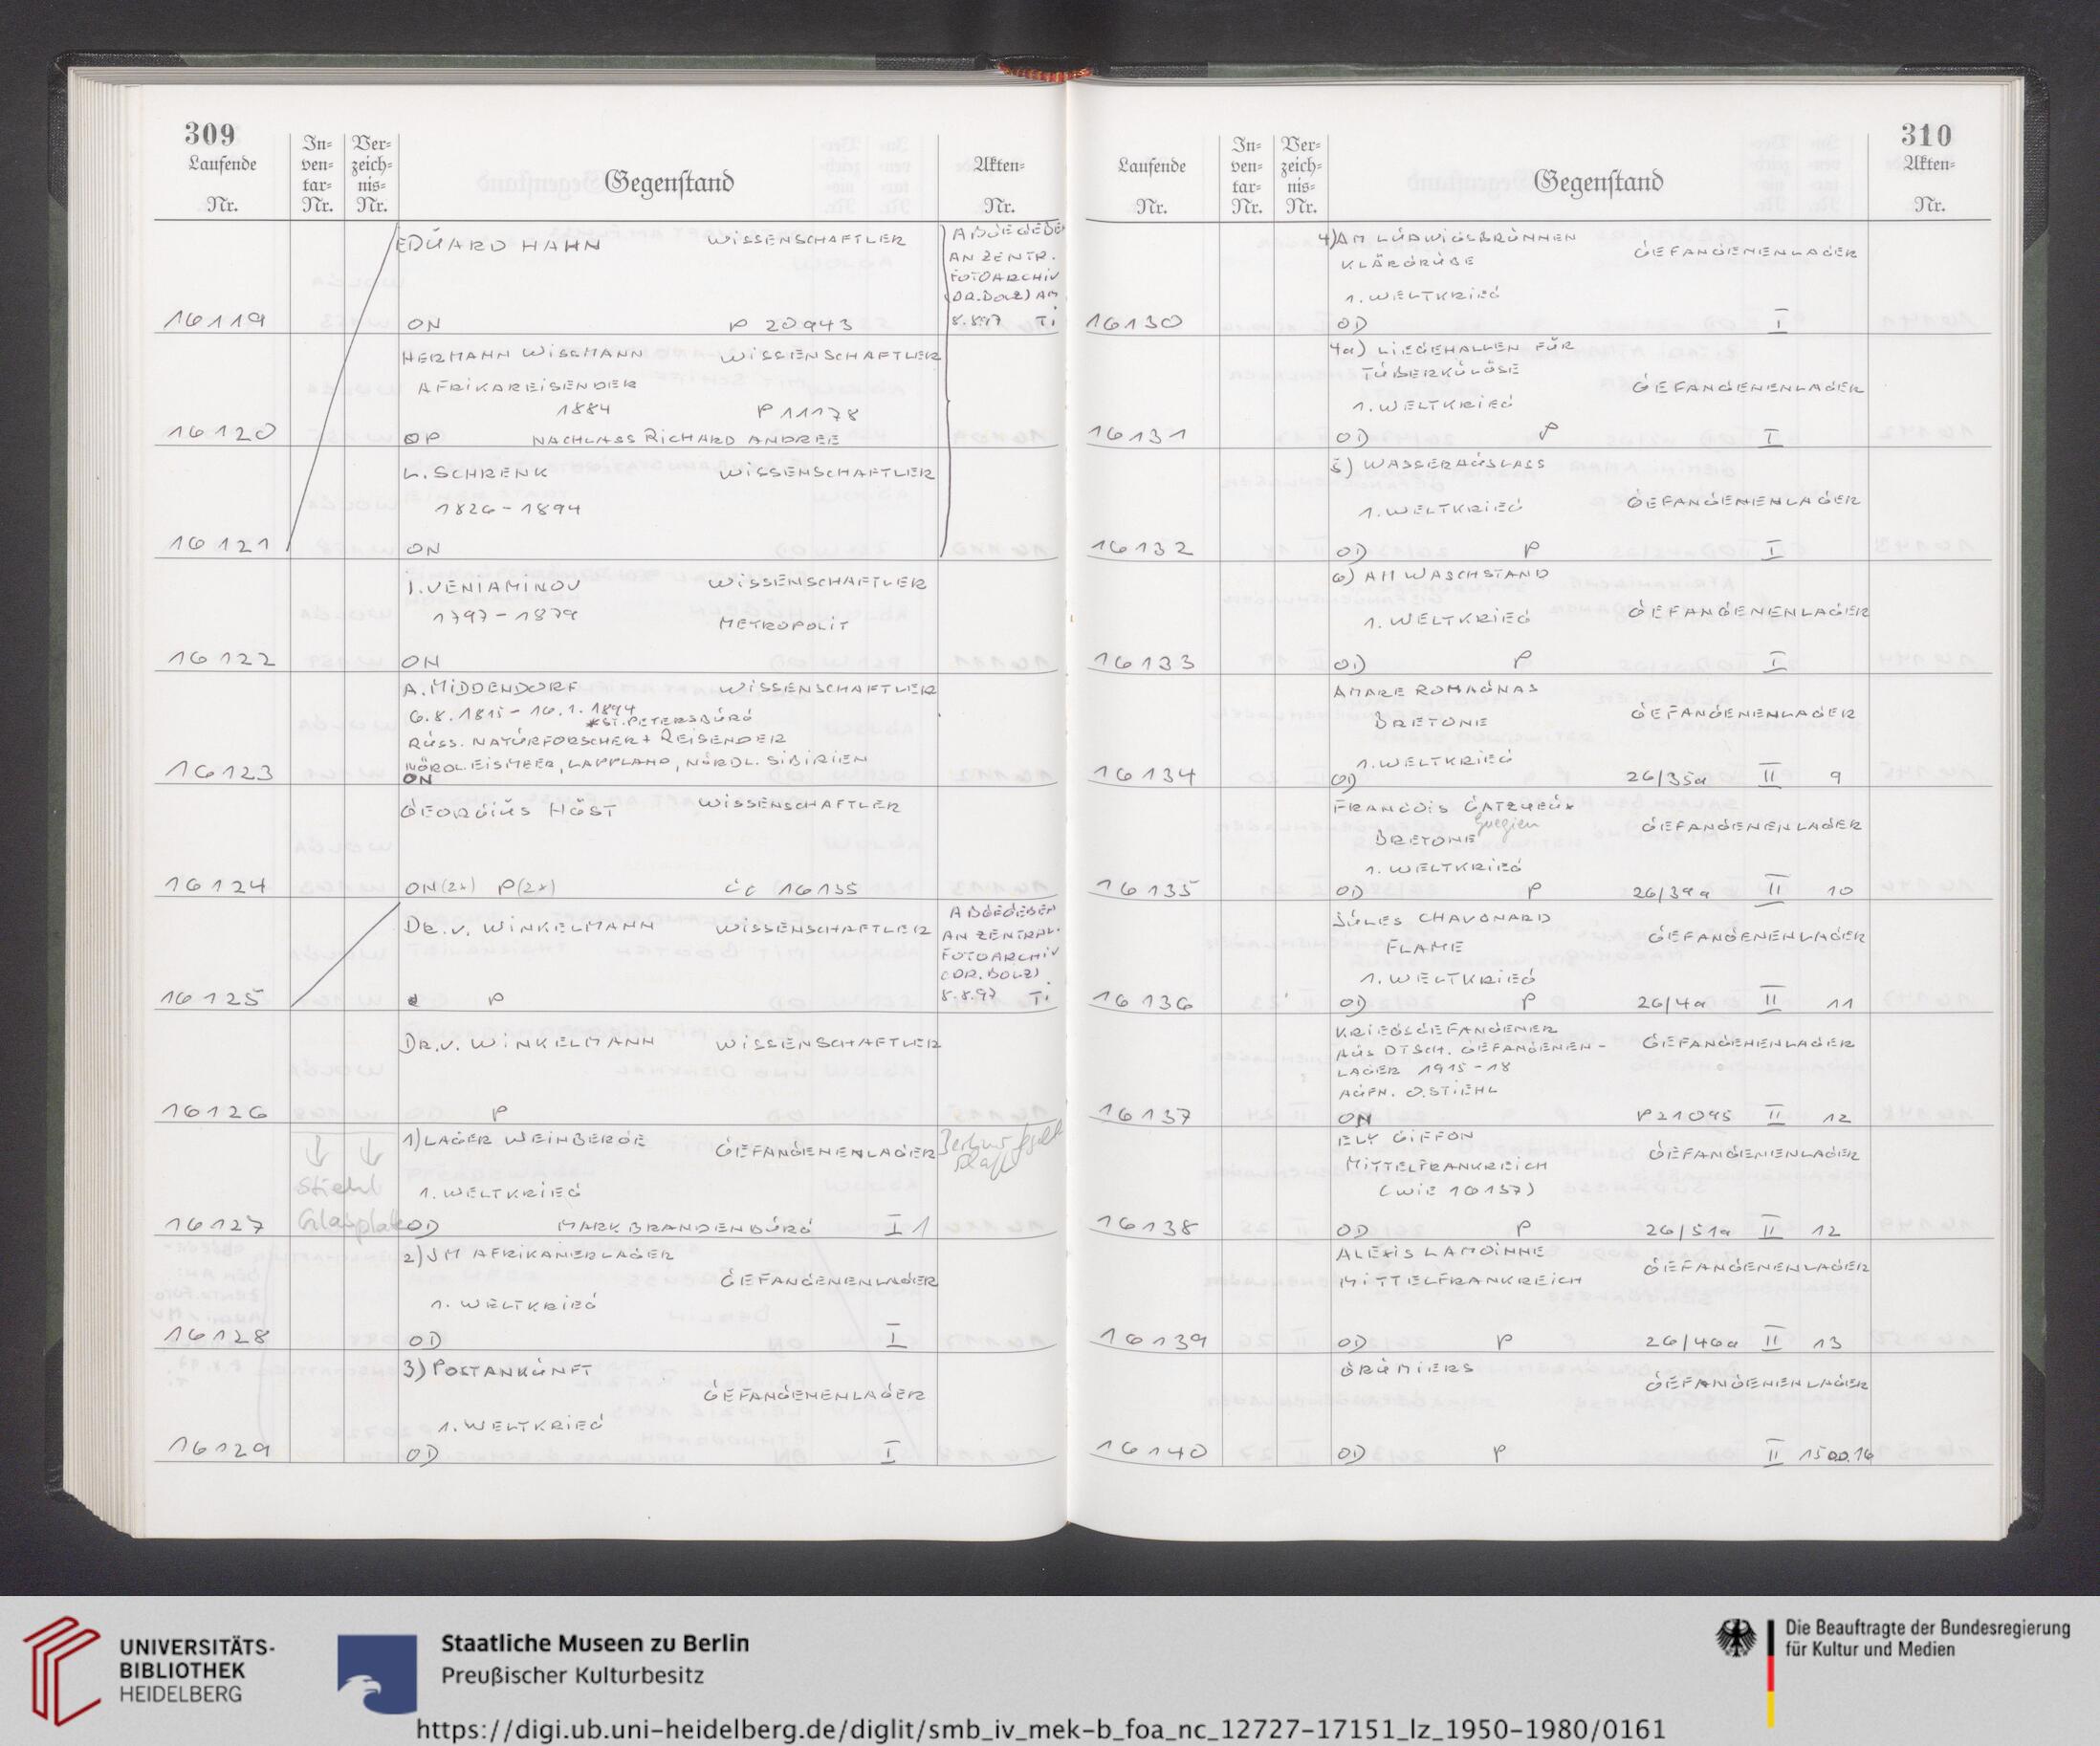 309
Laufende Nr.
In-ven-tar-Nr.
Ver-zeich-nis-Nr.
Gegenstand
Akten-Nr.
EDUARD HAHN WISSENSCHAFTLER
16119 ON P 20943
ABGEGEBEN
AN ZENTR.
FOTOARCHIV
(DR. BOLZ) AM
8.8.97 Ti
HERMANN WISSMANN WISSENSCHAFTLER
AFRIKAREISENDER
1884 P 11178
16120 OP NACHLASS RICHARD ANDREE
L. SCHRENK WISSENSCHAFTLER
1826 - 1894
16121 ON
I. VENIAMINOV WISSENSCHAFTLER
1797 - 1879
METROPOLIT
16122 ON
A. MIDDENDORF WISSENSCHAFTLER
6.8.1815 - 16.1.1894
*ST. PETERSBURG
RUSS. NATURFORSCHER + REISENDER
NÖRDL. EISMEER, LAPPLAND, NÖRDL. SIBIRIEN
16123 ON
GEORGIUS HÖST WISSENSCHAFTLER
16124 ON (2x) P (2x) 16135
DR. V. WINKELMANN WISSENSCHAFTLER
16125 P
ABGEGEBEN
AN ZENTRAL.
FOTOARCHIV
(DR. BOLZ)
8.8.97 Ti
DR. V. WINKELMANN WISSENSCHAFTLER
16126 P
1) LAGER WEINBERGE GEFANGENENLAGER
1. WELTKRIEG
Stiehl
16127 Glasplatte OD MARK BRANDENBURG I 1
2) IM AFRIKANERLAGER
GEFANGENENLAGER
1. WELTKRIEG
16128 OD I
3) POSTANKUNFT
GEFANGENENLAGER
1. WELTKRIEG
16129 OD I
310
Laufende Nr.
In-ven-tar-Nr.
Ver-zeich-nis-Nr.
Gegenstand
Akten-Nr.
4) AM LUDWIGSBRUNNEN GEFANGENENLAGER
KLÄRGRUBE
1. WELTKRIEG
16130 OD I
4a) LIEGEHALLEN FÜR
TUBERKULÖSE
GEFANGENENLAGER
1. WELTKRIEG
16131 OD P I
5) WASSERAUSLASS
GEFANGENENLAGER
1. WELTKRIEG
16132 OD P I
6) AM WASCHSTAND
GEFANGENENLAGER
1. WELTKRIEG
16133 OD P I
AMARE ROMAGNAS
BRETONE GEFANGENENLAGER
1. WELTKRIEG
16134 OD 26/35a II 9
FRANCOIS
BRETONE GEFANGENENLAGER
1. WELTKRIEG
16135 OD P 26/39a II 10
JULES CHAVONARD
FLAME GEFANGENENLAGER
1. WELTKRIEG
16136 OD P 26/4a II 11
KRIEGSGEFANGENER
AUS DTSCH. GEFANGENEN- GEFANGENENLAGER
LAGER 1915-18
AUFN. O. STIEHL
16137 ON P 21095 II 12
ELY GIFFON
MITTELFRANKREICH GEFANGENENLAGER
(WIE 16137)
16138 OD P 26/51a II 12
ALEXIS LAMOINNE
MITTELFRANKREICH GEFANGENENLAGER
16139 OD P 26/46a II 13
BRUMIERS
GEFANGENENLAGER
16140 OD P II 15 16
UNIVERSITÄTS-
BIBLIOTHEK
HEIDELBERG
Staatliche Museen zu Berlin
Preußischer Kulturbesitz
Die Beauftragte der Bundesregierung
für Kultur und Medien
https://digi.ub.uni-heidelberg.de/diglit/smb_iv_mek-b_foa_nc_12727-17151_lz_1950-1980/0161